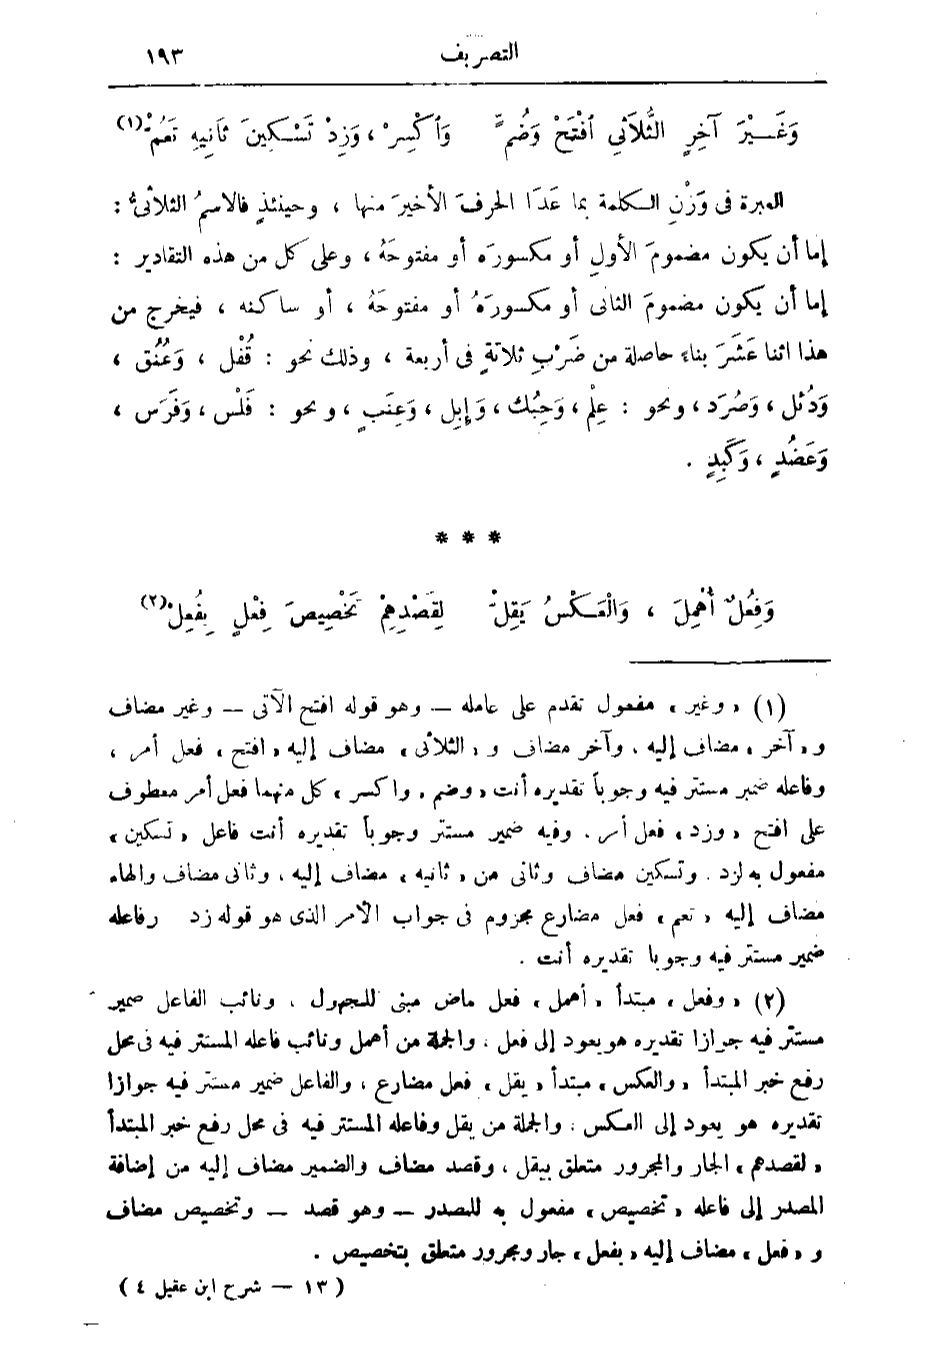 التصريف ١٩٣
وَغَيْرَ آخِرِ الثُّلَاثِي افْتَحْ وَضُمّْ وَاكْسِرْ، وَزِدْ تَسْكِينَ ثَانِيهِ تَعُمّْ(١)
العبرة فى وَزْنِ الكلمة بما عَدَا الحرفَ الأخيرَ منها ، وحينئذٍ فالاسمُ الثلاثىُّ :
إما أن يكون مضمومَ الأولِ أو مكسورَه أو مفتوحَهُ ، وعلى كل من هذه التقادير :
إما أن يكون مضمومَ الثانى أو مكسورَهُ أو مفتوحَهُ ، أو ساكنه ، فيخرج من
هذا اثنا عَشَرَ بناء حاصلة من ضَرْبِ ثلاثةٍ فى أربعة ، وذلك نحو : قُفْل ، وَعُنُق ،
وَدُئل ، وَصُرَد ، ونحو : عِلْم ، وَحِبُك ، وَإِبِل ، وَعِنَبٍ ، ونحو : فَلْس ، وَفَرَس ،
وَعَضُدٍ ، وَكَبِدٍ .
* * *
وَفِعُلٌ أُهْمِلَ ، وَالْعَكْسُ يَقِلّْ لِقَصْدِهِمْ تَخْصِيصَ فِعْلٍ بِفُعِلْ(٢)
(١) « وغير » مفعول تقدم على عامله — وهو قوله افتح الآتى — وغير مضاف
و « آخر » مضاف إليه . وآخر مضاف و « الثلاثى » مضاف إليه « افتح » فعل أمر ،
وفاعله ضمير مستتر فيه وجوباً تقديره أنت « وضم . واكسر » كل منهما فعل أمر معطوف
على افتح « وزد » فعل أمر . وفيه ضمير مستتر وجوباً تقديره أنت فاعل « تسكين »
مفعول به لزد . وتسكين مضاف وثانى من « ثانيه » مضاف إليه ، وثانى مضاف والهاء
مضاف إليه « تعم » فعل مضارع مجزوم فى جواب الأمر الذى هو قوله زد وفاعله
ضمير مستتر فيه وجوبا تقديره أنت .
(٢) « وفعل » مبتدأ « أهمل » فعل ماض مبنى للمجهول . ونائب الفاعل ضمير
مستتر فيه جوازا تقديره هو يعود إلى فعل ، والجملة من أهمل ونائب فاعله المستتر فيه فى محل
رفع خبر المبتدأ « والعكس » مبتدأ « يقل » فعل مضارع ، والفاعل ضمير مستتر فيه جوازا
تقديره هو يعود إلى العكس ، والجملة من يقل وفاعله المستتر فيه فى محل رفع خبر المبتدأ
« لقصدهم » الجار والمجرور متعلق بيقل ، وقصد مضاف والضمير مضاف إليه من إضافة
المصدر إلى فاعله « تخصيص » مفعول به للمصدر — وهو قصد — وتخصيص مضاف
و « فعل » مضاف إليه « بفعل » جار ومجرور متعلق بتخصيص .
( ١٣ — شرح ابن عقيل ٤ )